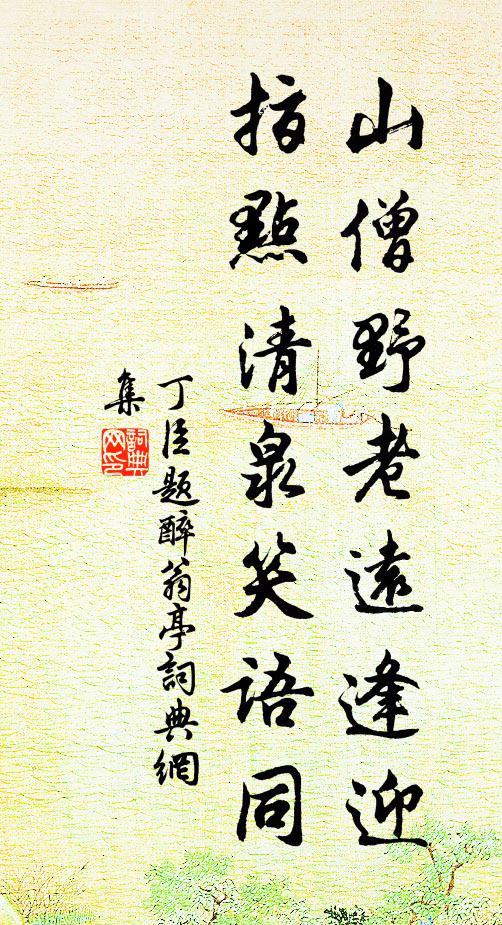 山僧野老遠逢迎
指點清泉笑語同
丁臣題醉翁亭詞典網
集
詞典
网印